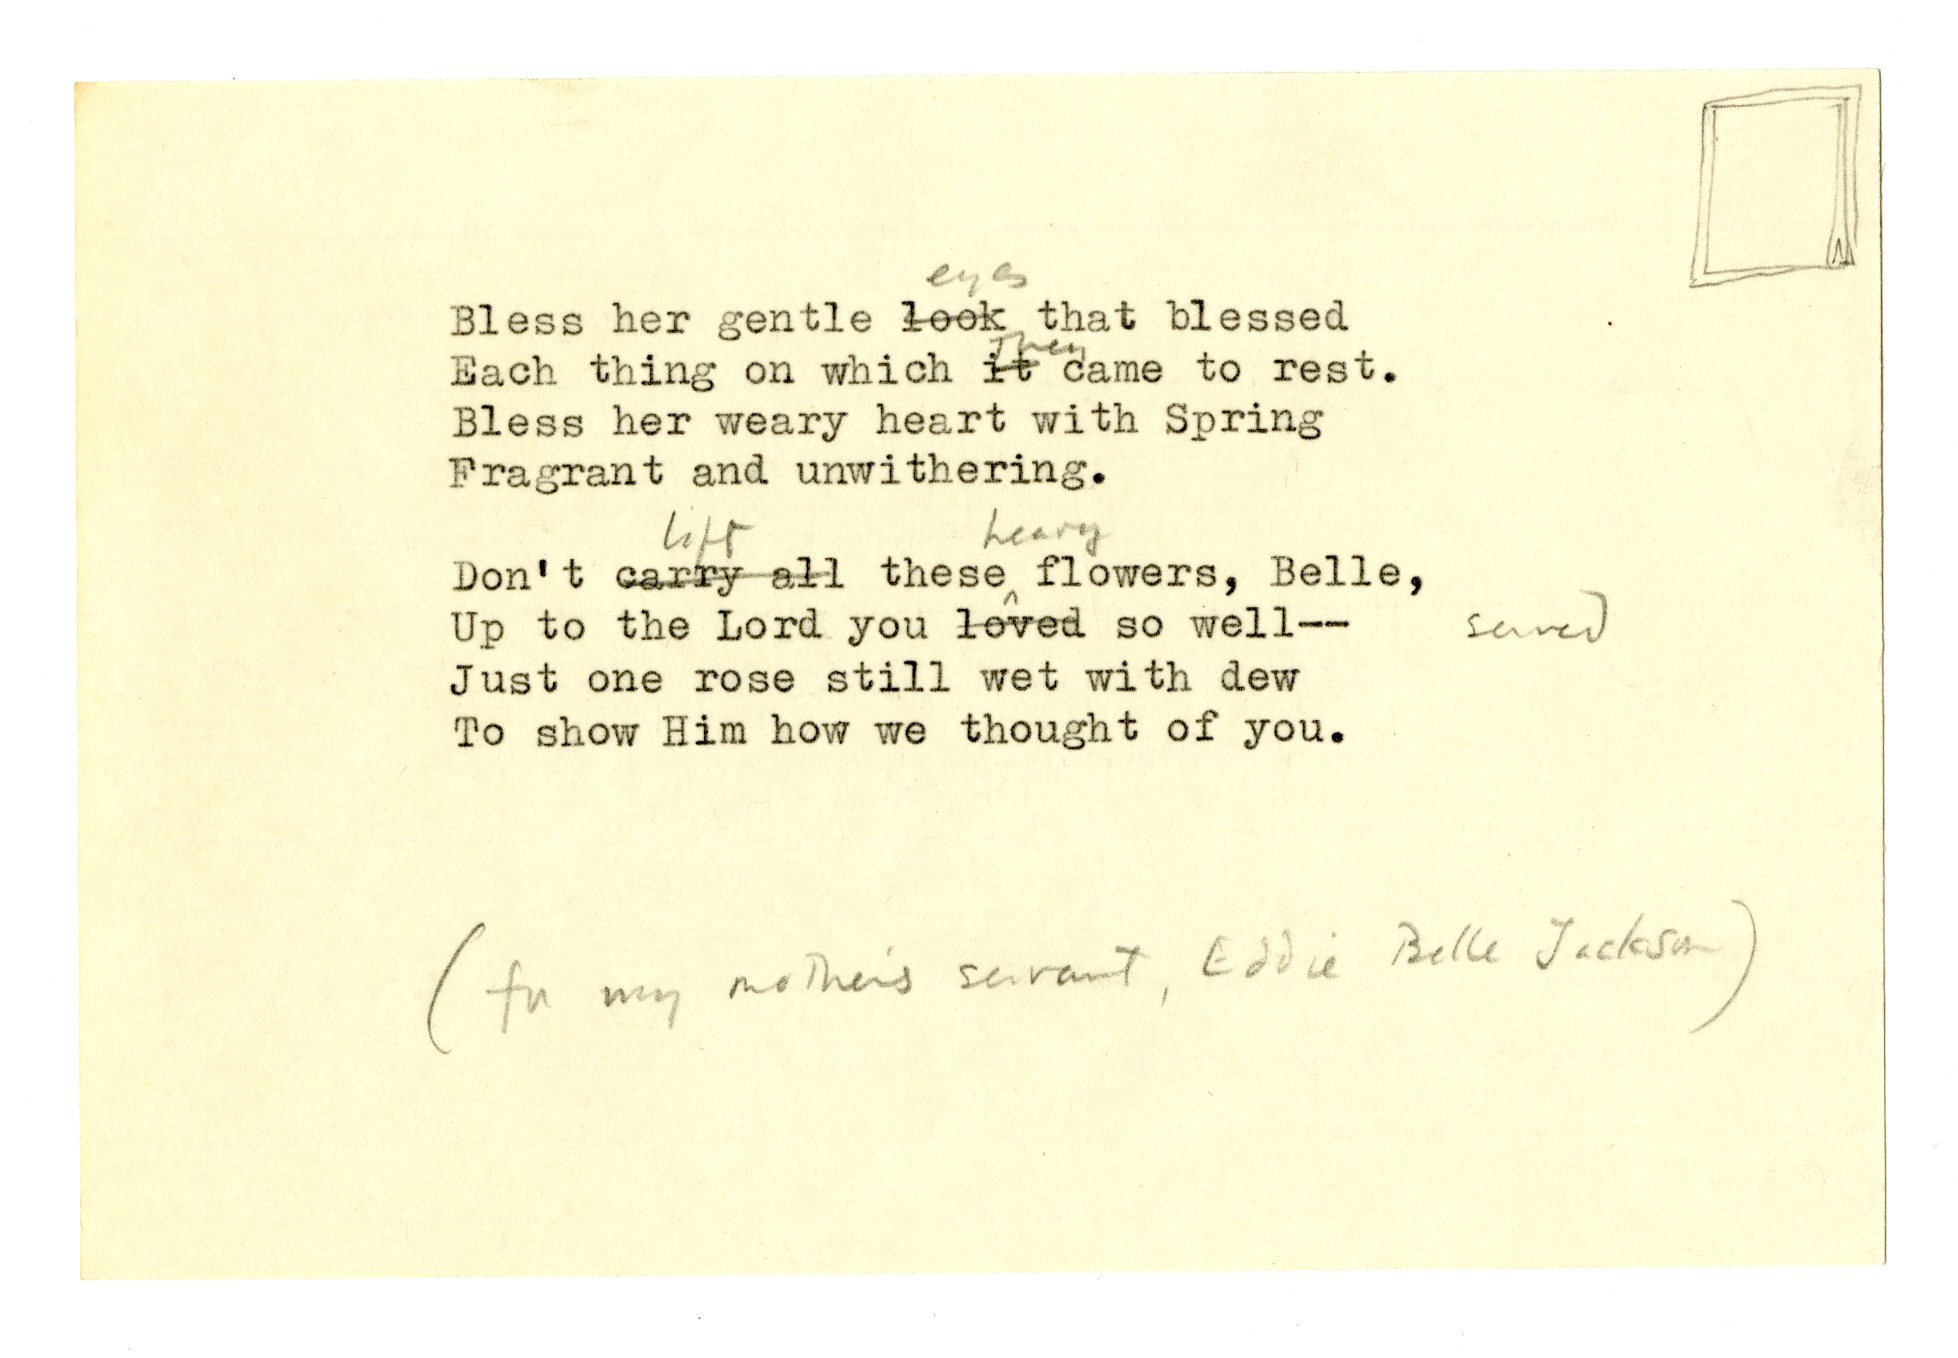 eyes
Bless her gentle look that blessed
they
Each thing on which it came to rest.
Bless her weary heart with Spring
Fragrant and unwithering.
lift heavy
Don't carry all these flowers, Belle,
^
Up to the Lord you loved so well-- served
Just one rose still wet with dew
To show Him how we thought of you.
(for my mother's servant, Eddie Belle Jackson)